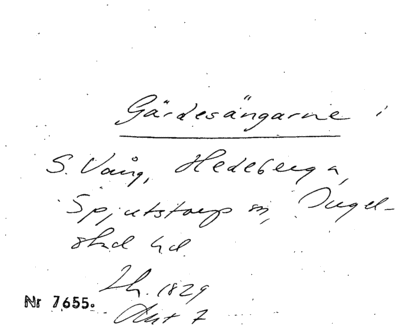 Gärdesängarne i
S. Vång, Hedeberga,
Spjutstorp sn, Ingel-
stad hd
Lh. 1829
Akt 7
Nr 7655.